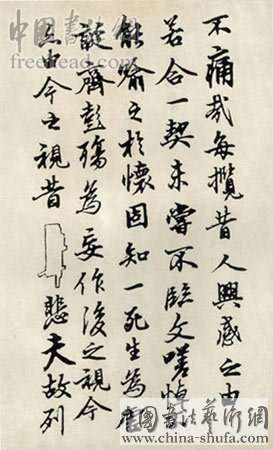 不痛哉每攬昔人興感之由
若合一契未嘗不臨文嗟悼
能喻之於懷固知一死生為虛
誕齊彭殤為妄作後之視今
亦由今之視昔 悲夫故列
freehead.com
中國書法藝術網
www.china-shufa.com